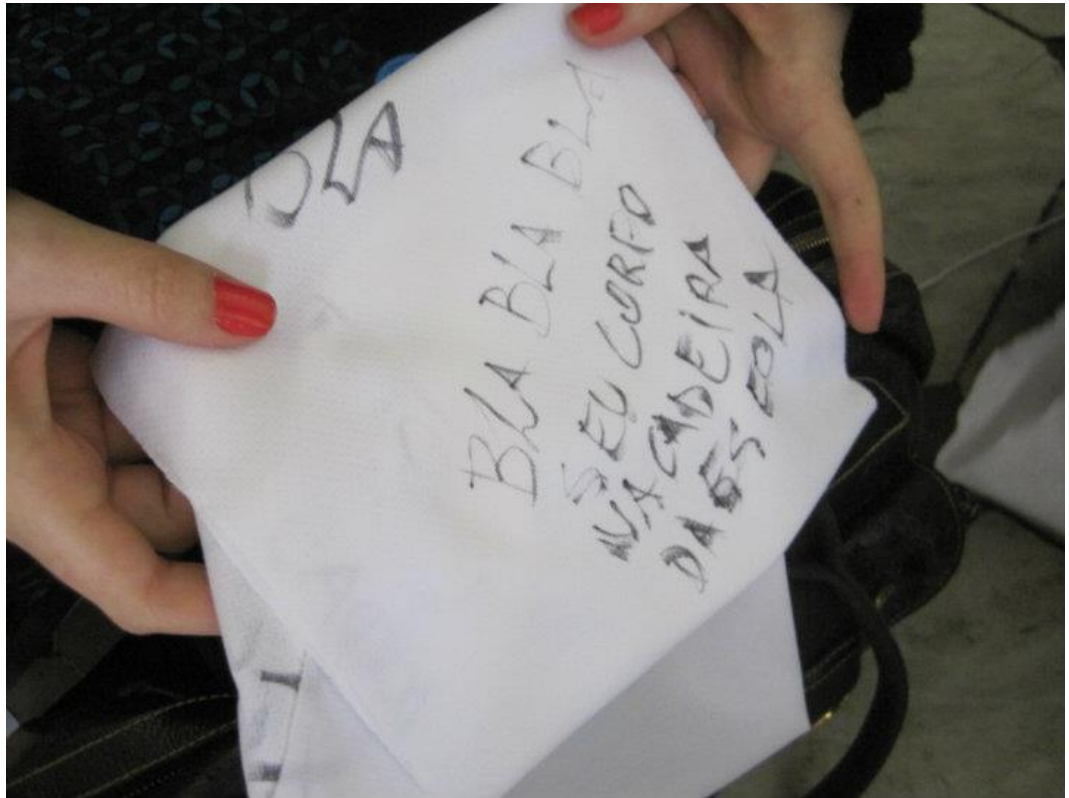 BLA
BLA BLA BLA
SEU CORPO
NA CADEIRA
DA ESCOLA